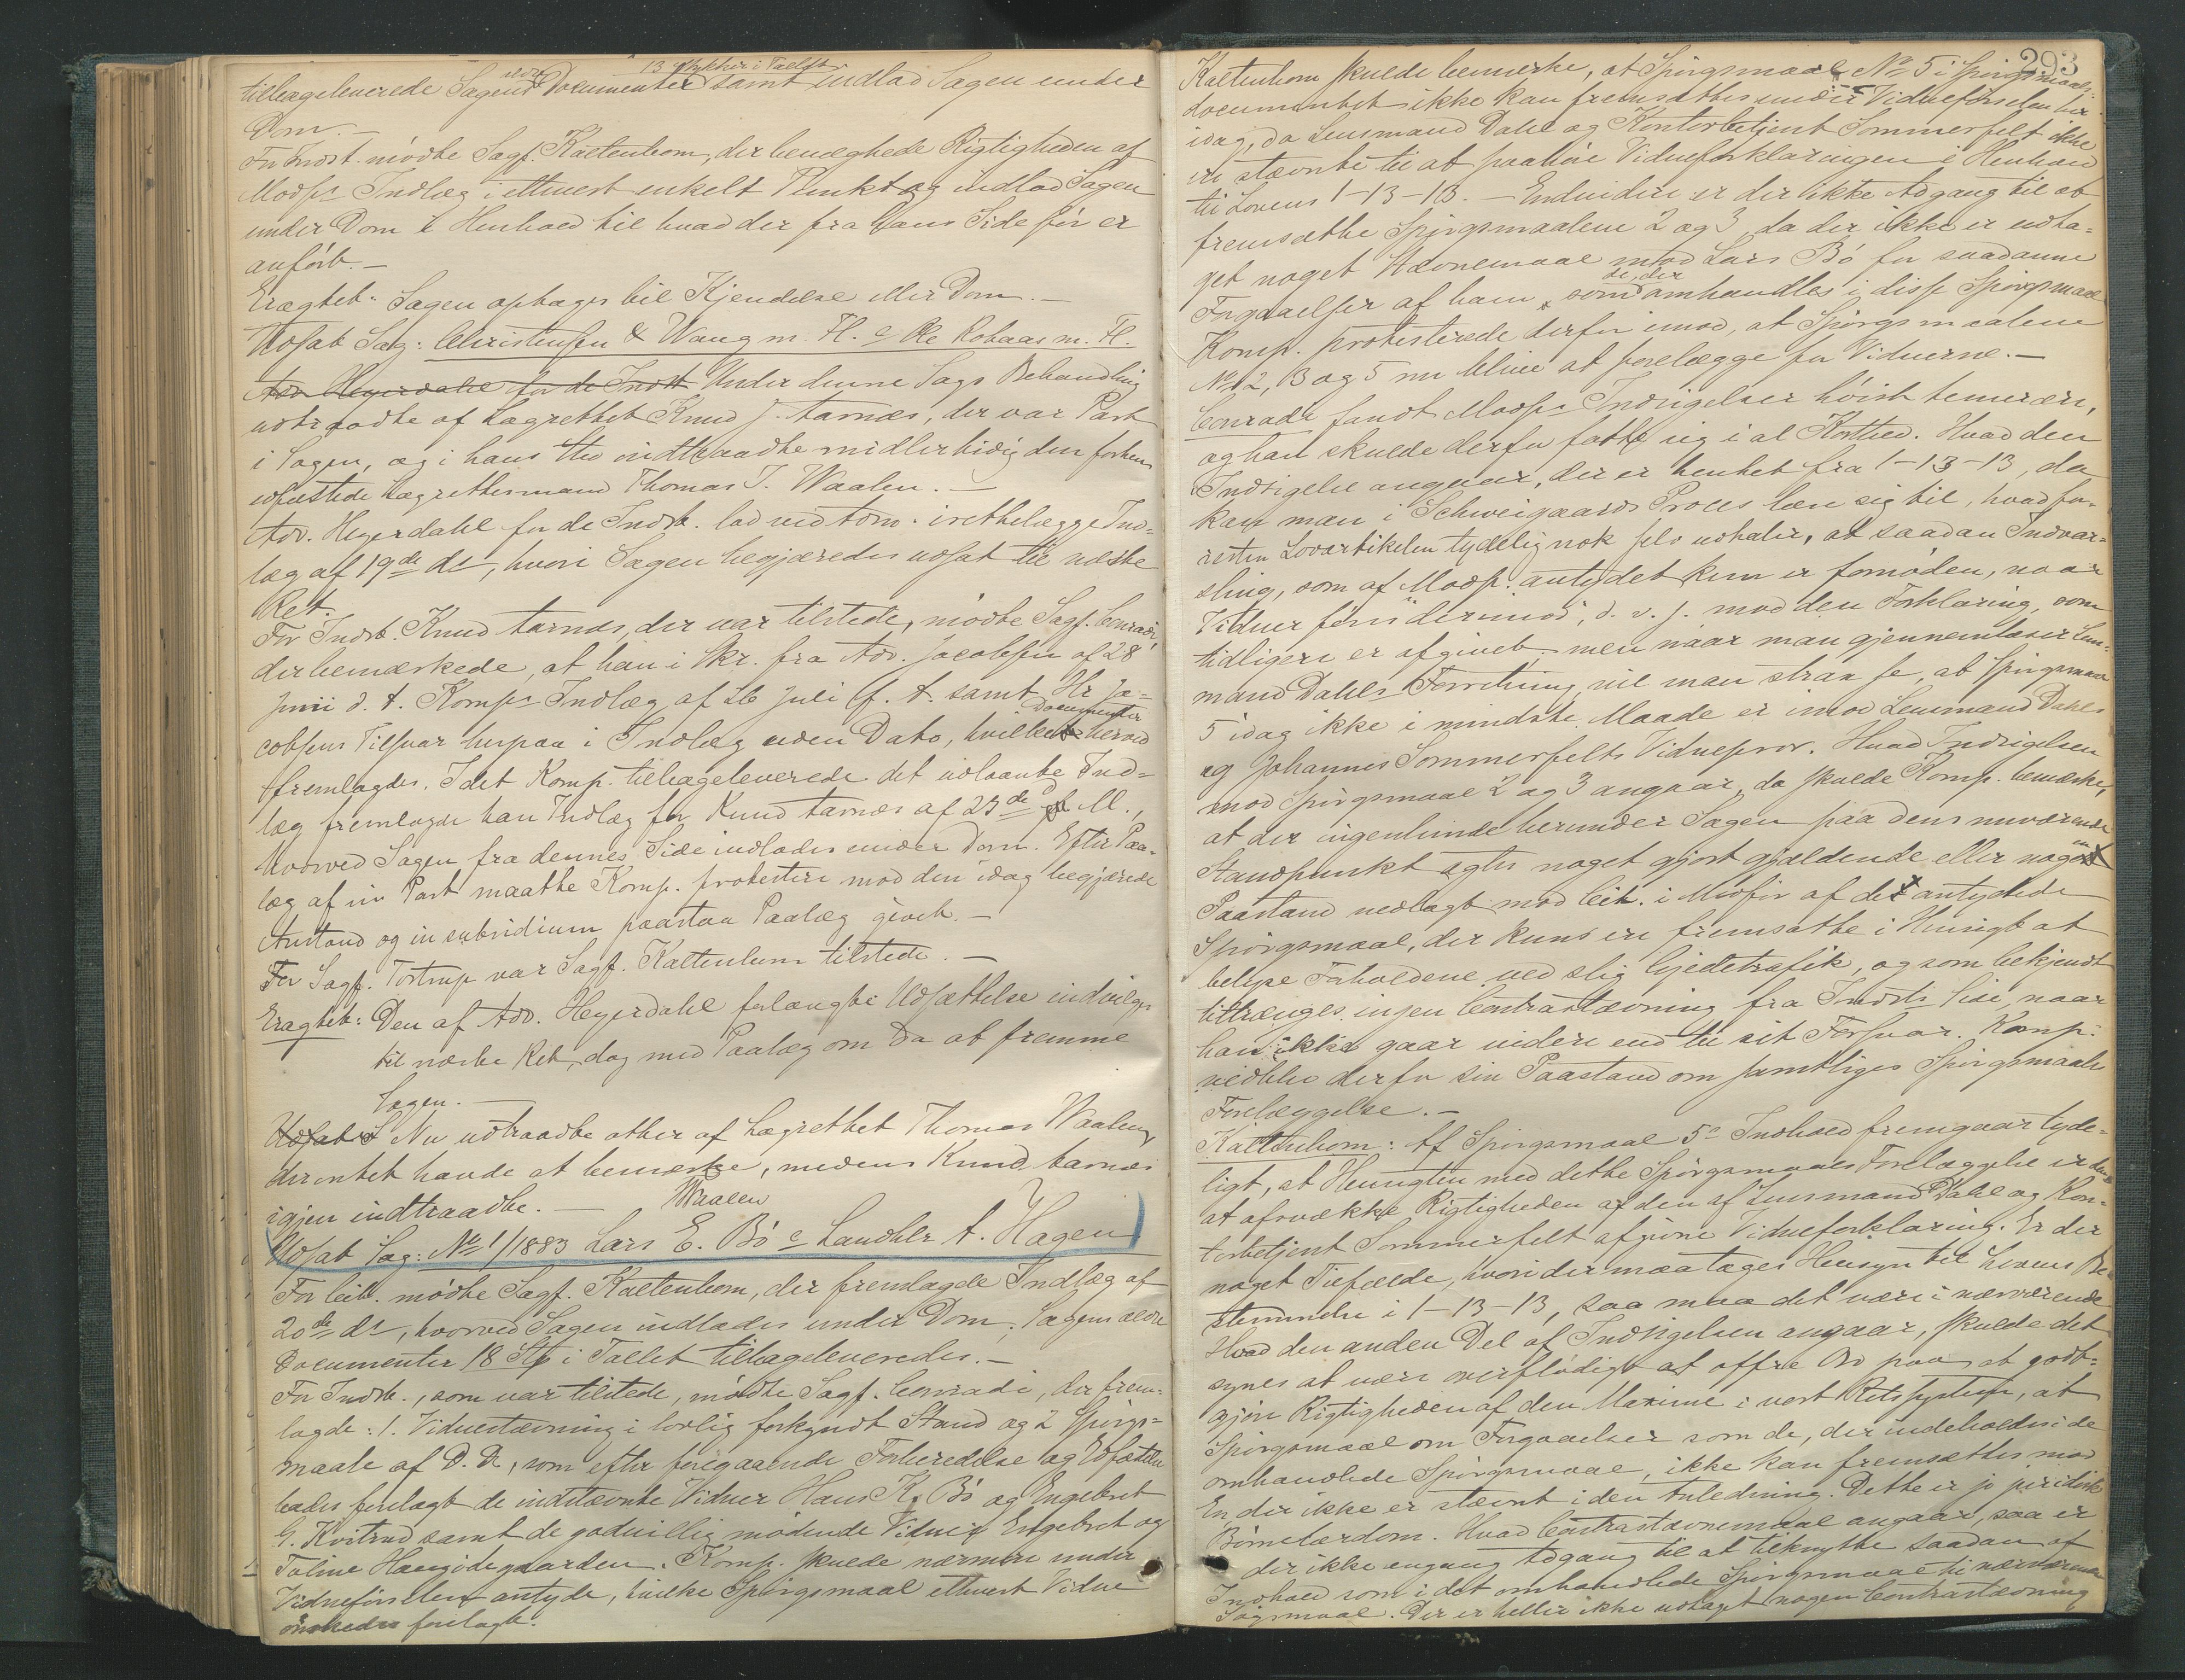 13 Stykker i Tallet
ældre
tilbageleverede Sagens Documenter samt indlod Sagen under
Dom. –
For Indst. mødte Sagf. Kaltenborn, der benegtede Rigtigheden af
Modps Indlæg i ethvert enkelt Punkt og indlod Sagen
under Dom i Henhold til hvad der fra hans Side før er
anført. –
Eragtet: Sagen optages til Kjendelse eller Dom. –
Udsat Sag: Christensen & Wang m. Fl. c/ Ole Robaas m. Fl.
Adv. Heyerdahl for de Indst. Under denne Sags Behandling
udtraadte af Lagrettet Knud J. Aarnæs, der var Part
i Sagen, og i hans Sted indtraadte midlertidig den forhen
edfæstede Lagrettesmand Thomas T. Waalen. –
Adv. Heyerdahl for de Indst. lod ved Adm. irettelægge Ind-
læg af 19de ds, hvori Sagen begjæredes udsat til næste
Ret.
For Indst. Knud Aarnæs, der var tilstede, mødte Sagf. Conradi
der bemærkede, at han i Skr. fra Adv. Jacobsen af 28
Juni d. A. Komps Indlæg af 26 Juli s. A. samt Hr Ja-
cobsens Tilsvar herpaa i Indlæg uden Dato, hvilke Documenter herved
fremlagdes. Idet Komp. tilbageleverede det udlaante Ind-
læg fremlagde han Indlæg for Knud Aarnæs af 23de d. M.,
hvorved Sagen fra dennes Side indlodes under Dom. Efter Paa-
læg af sin Part maatte Komp. protestere mod den idag begjærede
Anstand og in subsidium paastaa Paalæg givet. –
For Sagf. Tostrup var Sagf. Kaltenborn tilstede. –
Eragtet: Den af Adv. Heyerdahl forlangte Udsættelse indvilges
til næste Ret, dog med Paalæg om da at fremme
Sagen. –
Udsat S Nu udtraadte atter af Lagrettet Thomas Waalen,
der intet havde at bemærke, medens Knud Aarnæs
igjen indtraadte. – Waalen
Udsat Sag: No 1/1883 Lars E. Bö c/ Landhlr A. Hagen
For Cit. mødte Sagf. Kaltenborn, der fremlagde Indlæg af
20de ds, hvorved Sagen indlodes under Dom. Sagens ældre
Documenter 18 Stk i Tallet tilbageleveredes. –
For Indst., som var tilstede, mødte Sagf. Conradi, der frem-
lagde: 1. Vidnestævning i lovlig forkyndt Stand og 2 Spørgs-
maale af D. D., som efter foregaaende Foberedelse og Edfæstelse
bades forelagt de indstævnte Vidner Hans K. Bö og Engebret
G. Kvitrud samt de godvillig mødende Vidner Engebret og
Toline Haugödegaarden. Komp. skulde nærmere under
Vidneførslen antyde, hvilke Spørgsmaal ethvert Vidne
ønskedes forelagt.
293
Kaltenborn skulde bemærke, at Spørgsmaal No 5 i Spørgsmaals-
documentet ikke kan fremsættes under Vidneførselen her
idag, da Lensmand Dahl og Kontorbetjent Sommerfelt ikke
er stævnte til at paahøre Vidneforklaringen i Henhold
til Lovens 1-13-13. – Endvidere er der ikke Adgang til at
fremsætte Spørgsmaalene 2 og 3, da der ikke er udta-
get noget Stævnemaal mod Lars Bö for saadanne
Forgaaelser af ham, som de, der omhandles i disse Spørgsmaal
Komp. protesterede derfor imod, at Spørgsmaalene
No 2, 3 og 5 nu bliver at forelægge for Vidnerne. –
Conradi fandt Modps Indsigelser høist temerære,
og han skulde derfor fatte sig i al Korthed. Hvad den
Indsigelse angaar, der er hentet fra 1-13-13, da
kan man i Schweigaards Proces læse sig til, hvad for-
resten Lovartikelen tydelig nok selv udtaler, at saadan Indvar-
sling, som af Modp. antydet kun er fornøden, naar
Vidner føres "derimod", d. v. s. mod den Forklaring, som
tidligere er afgivet, men naar man gjennemlæser Lens-
mand Dahls Forretning, vil man strax se, at Spørgsmaal
5 idag ikke i mindste Maade er imod Lensmand Dahls
og Johannes Sommerfelts Vidneprov. Hvad Indsigelsen
mod Spørgsmaal 2 og 3 angaar, da skulde Komp. bemærke,
at der ingenlunde herunder Sagen paa dens nuværende
Standpunkt agtes noget gjort gjældende eller nogen
Paastand nedlagt mod Cit. i Medfør af de antydede
Spørgsmaal, der kuns ere fremsatte i Hensigt at
belyse Forholdene ved slig Gjedetrafik, og som bekjendt
tiltrænges ingen Contrastævning fra Indsts Side, naar
han ikke gaar videre end til sit Forsvar. Komp.
vedblev derfor sin Paastand om samtliges Spørgsmaals
Forelæggelse. –
Kaltenborn: Af Spørgsmaal 5s Indhold fremgaar tyde-
ligt, at Hensigten med dette Spørgsmaals Forelæggelse er den
at afsvække Rigtigheden af den af Lensmand Dahl og Kon-
torbetjent Sommerfelt afgivne Vidneforklaring. Er der
noget Tilfælde, hvori der maa tages Hensyn til Lovens Be-
stemmelse i 1-13-13, saa maa det være i nærværende
Hvad den anden Del af Indsigelsen angaar, skulde det
synes at være overflødigt at offre Ord paa at godt-
gjøre Rigtigheden af den Maxime i vort Retssystem, at
Spørgsmaal om Forgaaelser som de, der indeholdes i de
omhandlede Spørgsmaal, ikke kan fremsættes mod
En der ikke er stævnt i den Anledning. Dette er jo juridisk
Børnelærdom. Hvad Contrastævnemaal angaar, saa er
der ikke engang Adgang til at tilknytte saadan af
Indhold som i det omhandlede Spørgsmaal til nærværende
Søgsmaal. Der er heller ikke udtaget nogen Contrastævning